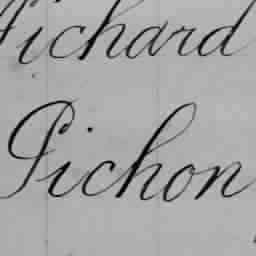 Pichard
Pichon